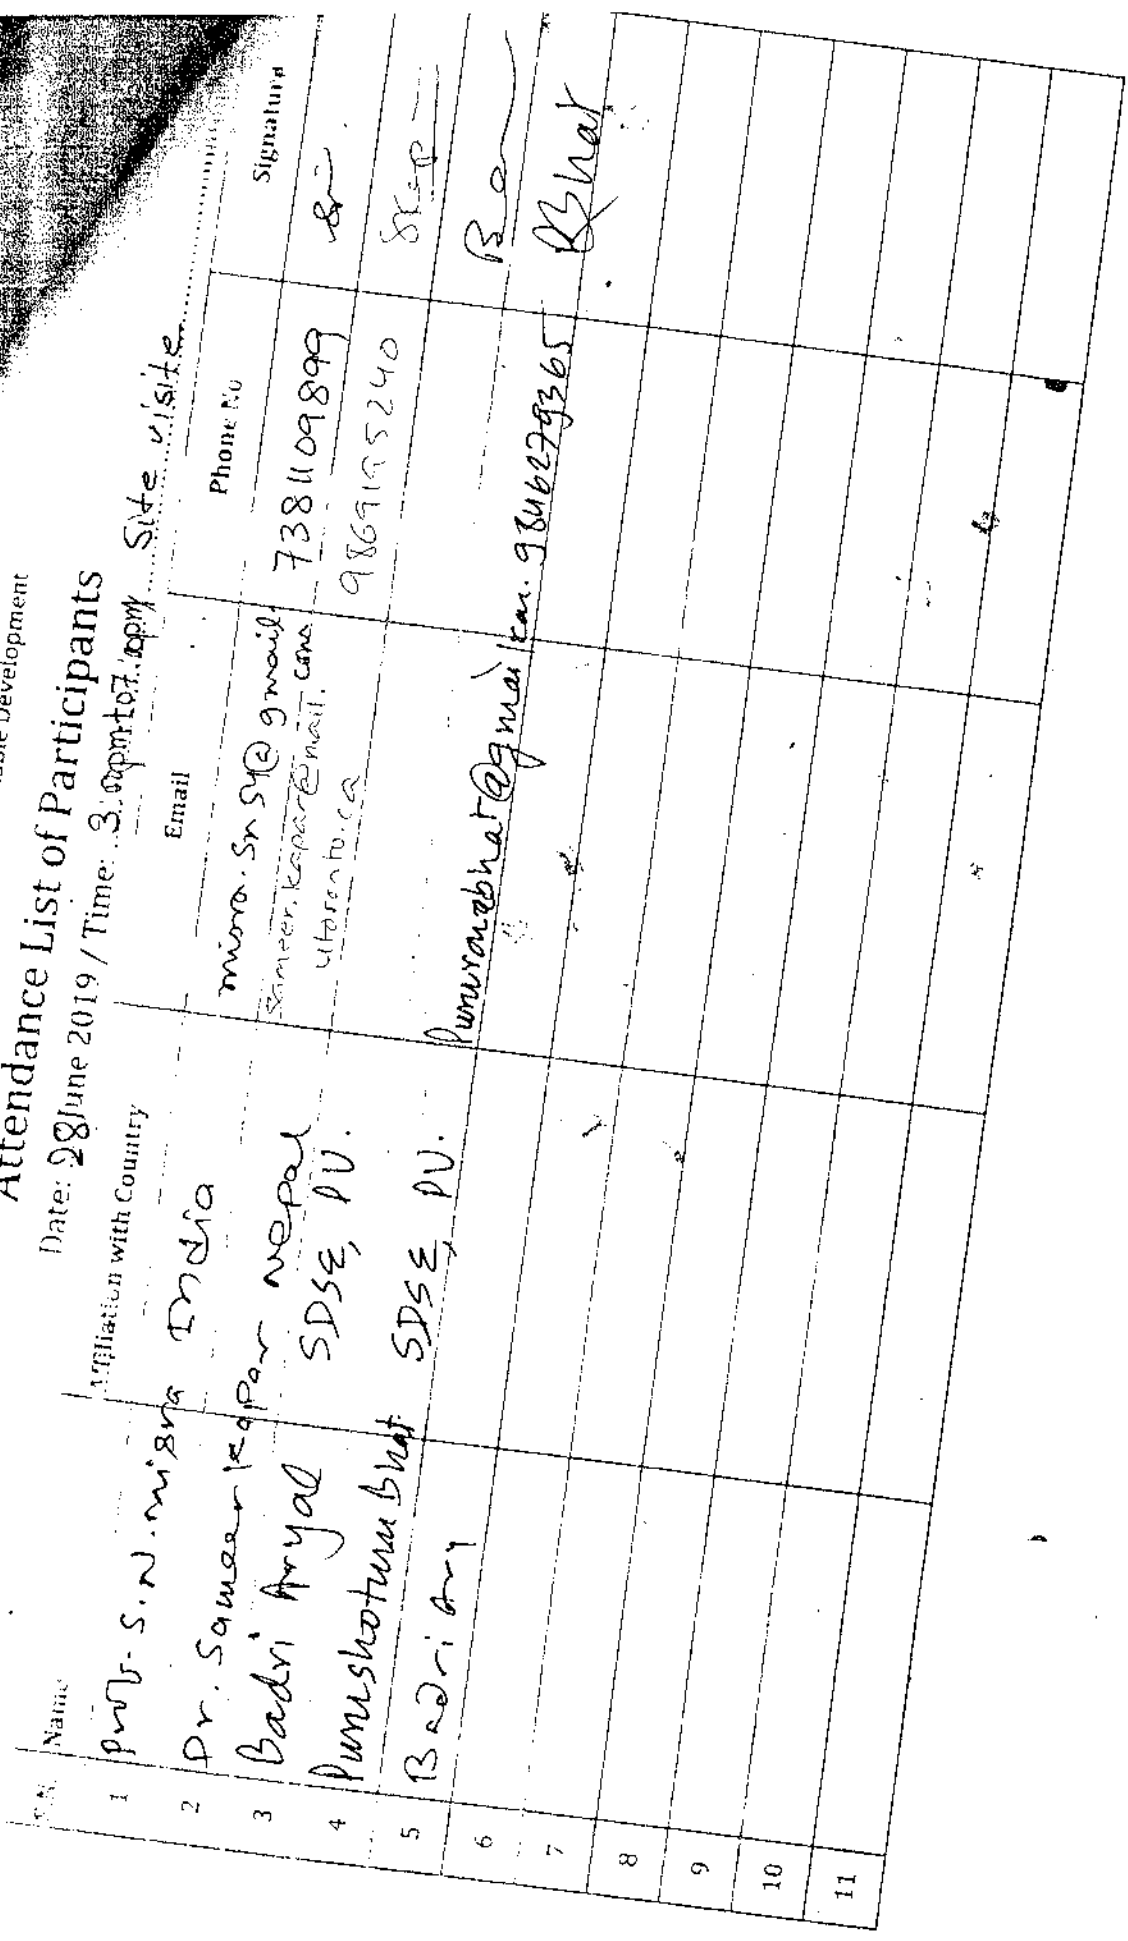 Development
Attendance List of Participants
Date: 28 June 2019 / Time: 3:00pm to 7:00pm Site visite
S.N. Name Affiliation with Country Email Phone No Signature
1 Prof. S.N. Misra India misra.sn54@gmail.com 7381109899
2 Dr. Sameer Kapar Nepal sameer.kapar@mail.utoronto.ca 9869195240
3 Badri Aryal SDSE, PU.
4 Purushotam Bhat SDSE, PU. 9846279365 PBhat
5 Badri Ary
6
7
8
9
10
11